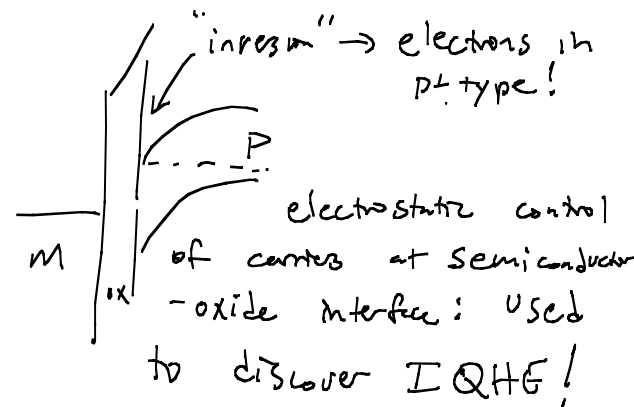 "inversion" → electrons in
p-type!
P
electrostatic control
M
of carriers at semiconductor
ox
-oxide interface: used
to discover IQHE!